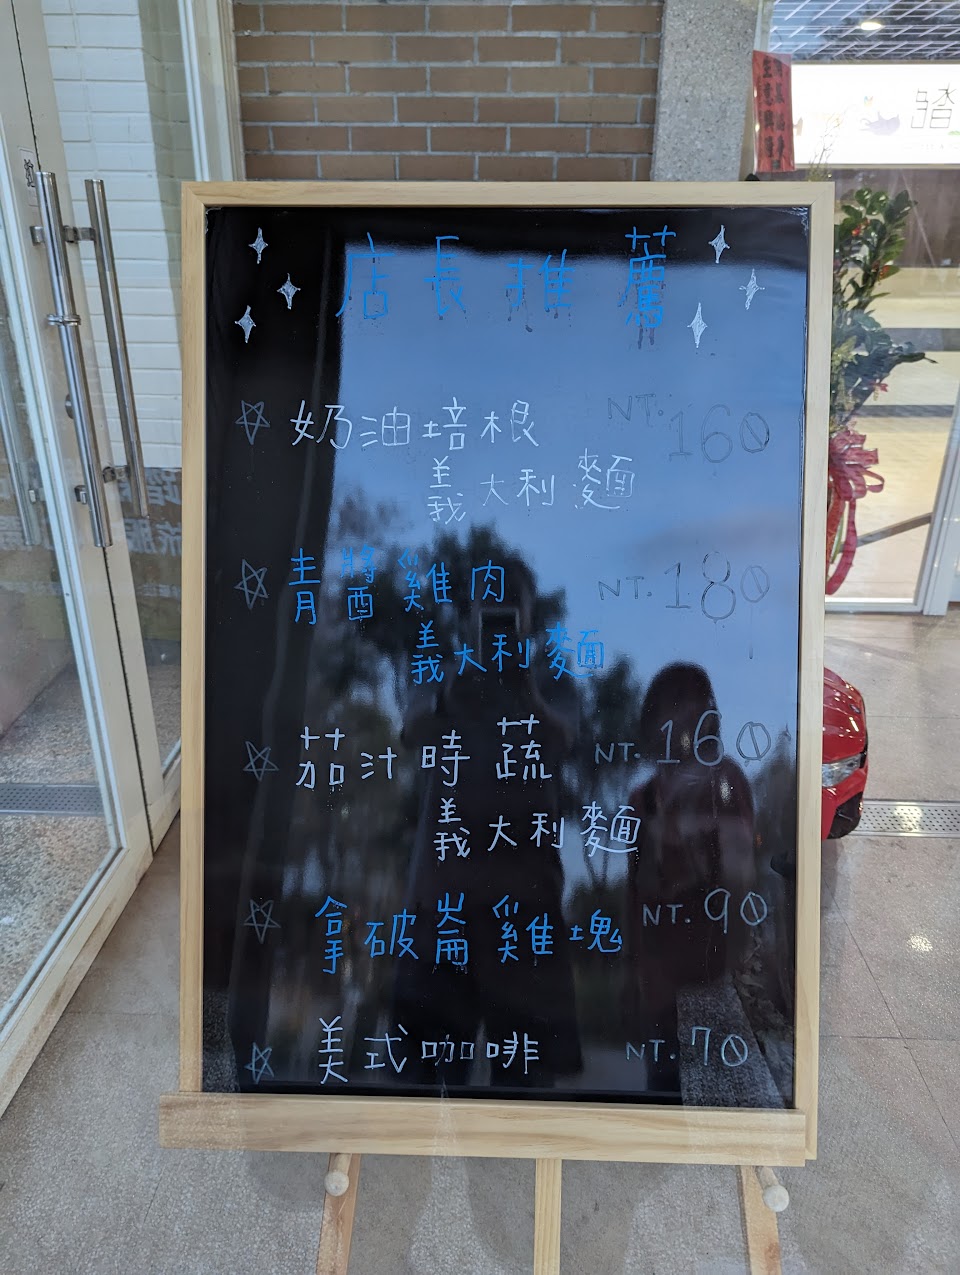 店長推薦
奶油培根 NT. 160
義大利麵
青醬雞肉 NT. 180
義大利麵
茄汁時蔬 NT. 160
義大利麵
拿破崙雞塊 NT. 90
美式咖啡 NT. 70